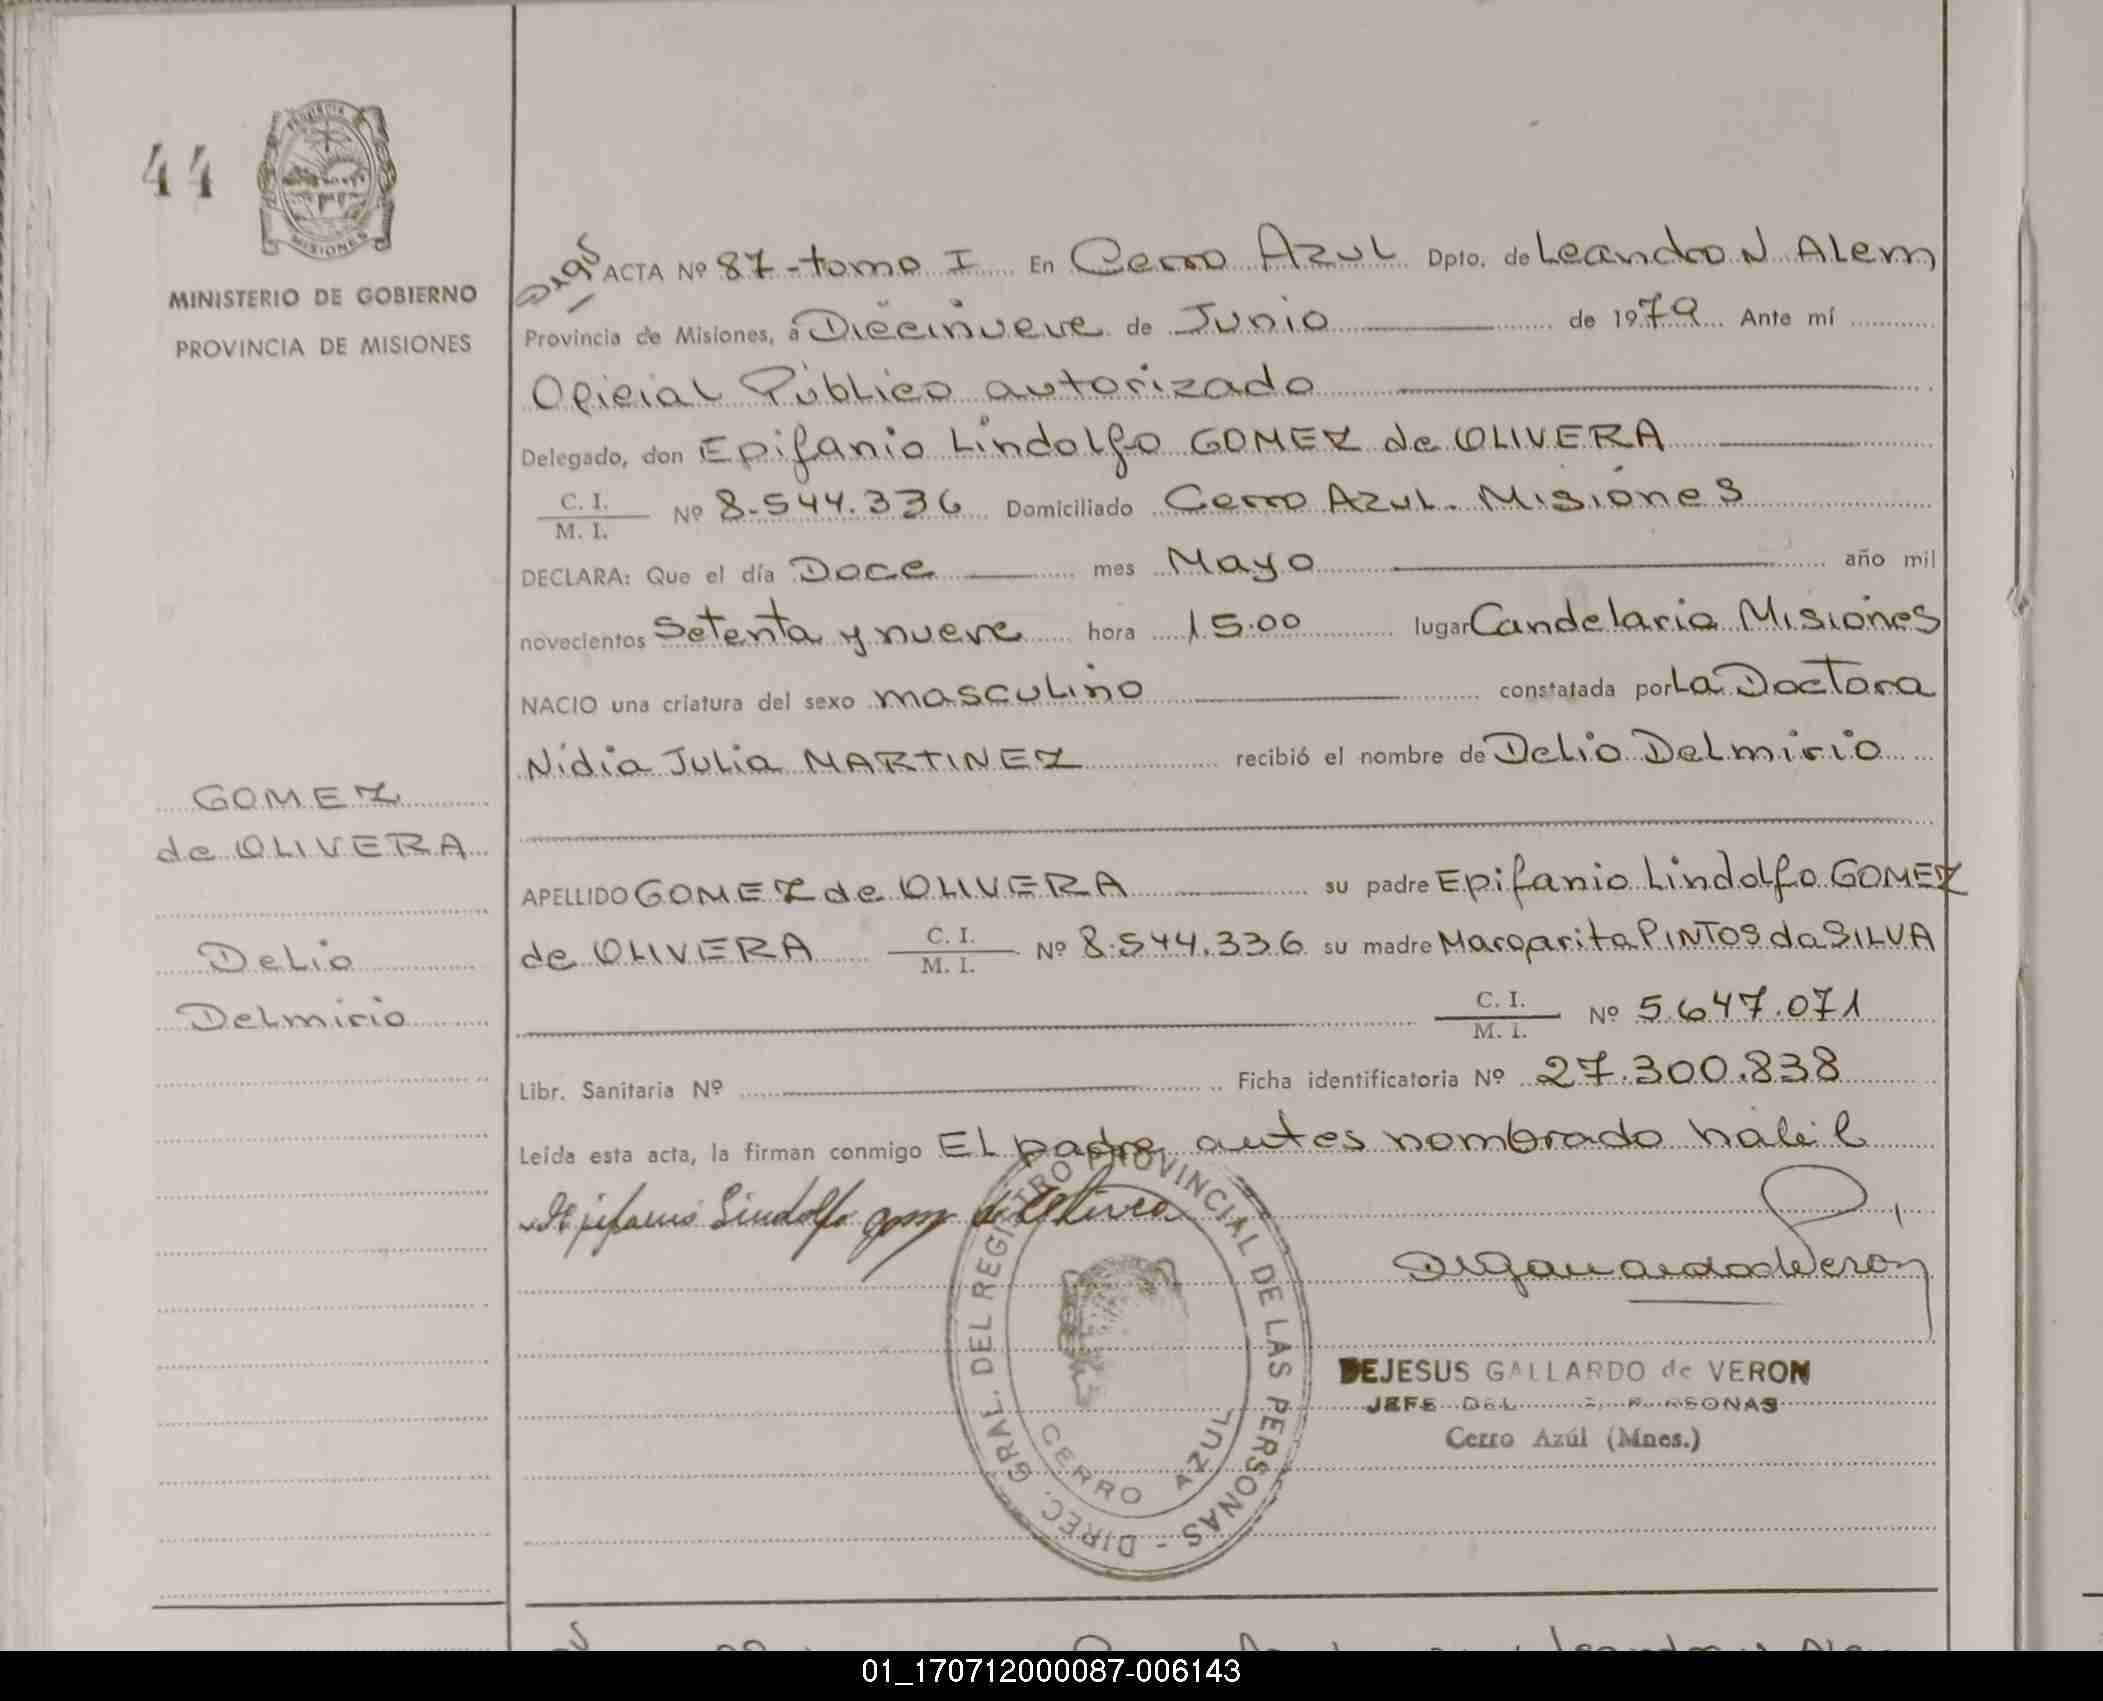 44
PROVINCIA
MISIONES
MINISTERIO DE GOBIERNO
PROVINCIA DE MISIONES
GOMEZ
de OLIVERA
Delio
Delmirio
ACTA Nº 87-tomo I En Cerro Azul Dpto. de Leandro N Alem
Provincia de Misiones, a Diecinueve de Junio de 1979 Ante mí
Oficial Público autorizado
Delegado, don Epifanio Lindolfo GOMEZ de OLIVERA
C. I.
M. I. Nº 8.544.336 Domiciliado Cerro Azul. Misiones
DECLARA: Que el día Doce mes Mayo año mil
novecientos Setenta y nueve hora 15.00 lugar Candelaria Misiones
NACIO una criatura del sexo masculino constatada por La Doctora
Nidia Julia MARTINEZ recibió el nombre de Delio Delmirio
APELLIDO GOMEZ de OLIVERA su padre Epifanio Lindolfo GOMEZ
de OLIVERA C. I. M. I. Nº 8.544.336 su madre Margarita PINTOS da SILVA
C. I. M. I. Nº 5.647.071
Libr. Sanitaria Nº Ficha identificatoria Nº 27.300.838
Leída esta acta, la firman conmigo El padre antes nombrado habil
Epifanio Lindolfo gomez de Olivera
DIREC. GRAL. DEL REGISTRO PROVINCIAL DE LAS PERSONAS -
CERRO AZUL
DEJESUS GALLARDO de VERON
JEFE DEL PERSONAS
Cerro Azúl (Mnes.)
01_170712000087-006143